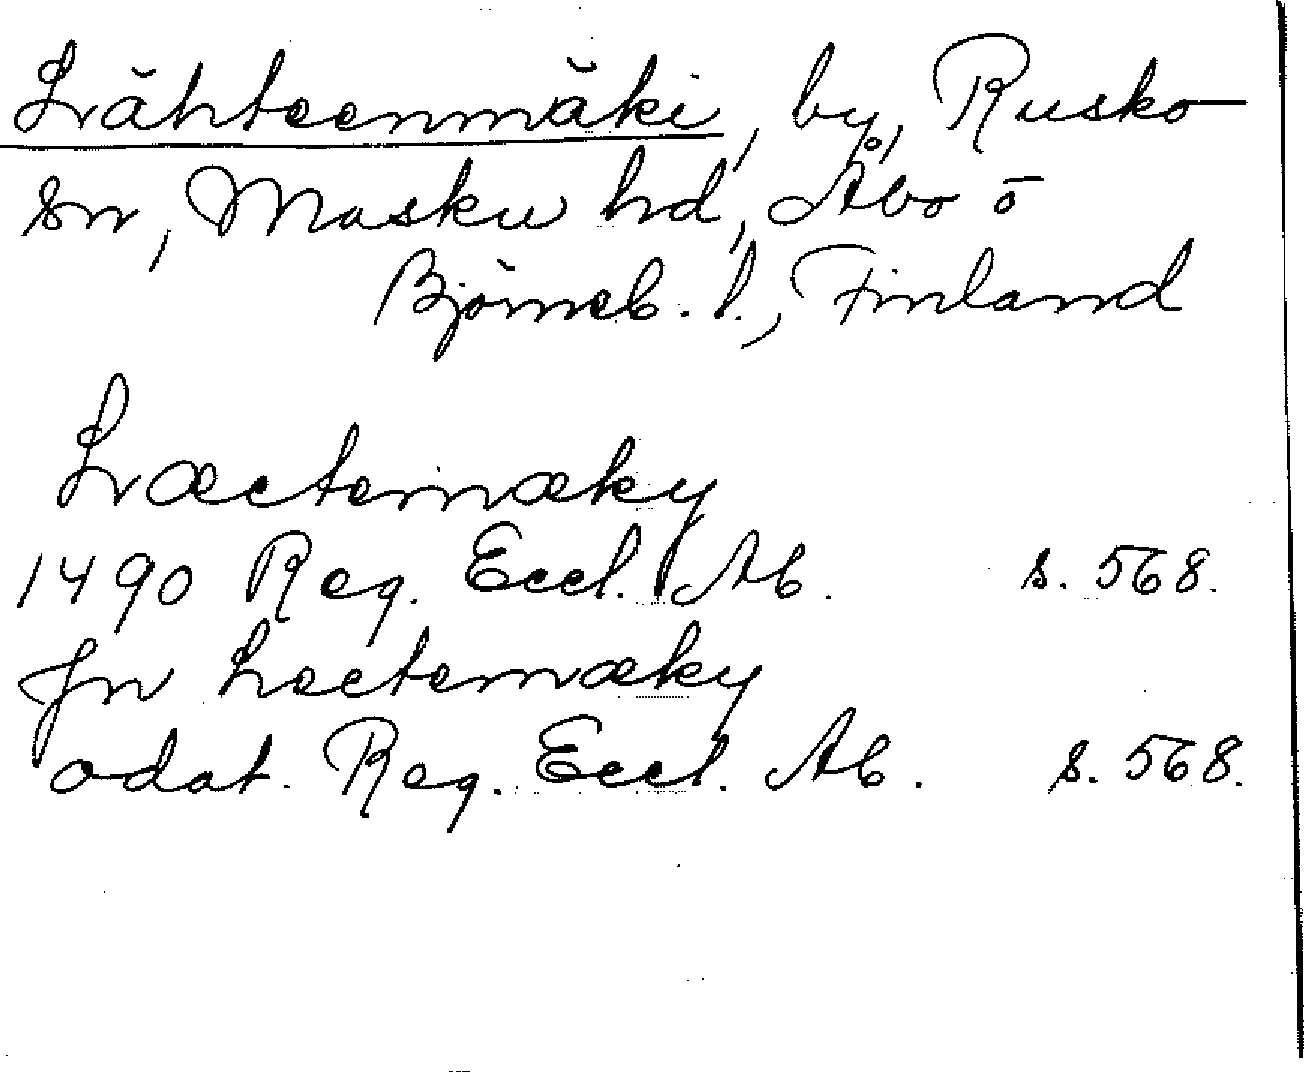 Lähteenmäki, by, Rusko
sn, Masku hd, Åbo o
Björneb. l., Finland
Læctemæky
1490 Reg. Eccl. Ab. s. 568.
Jn Lectemæky
odat. Reg. Eccl. Ab. s. 568.